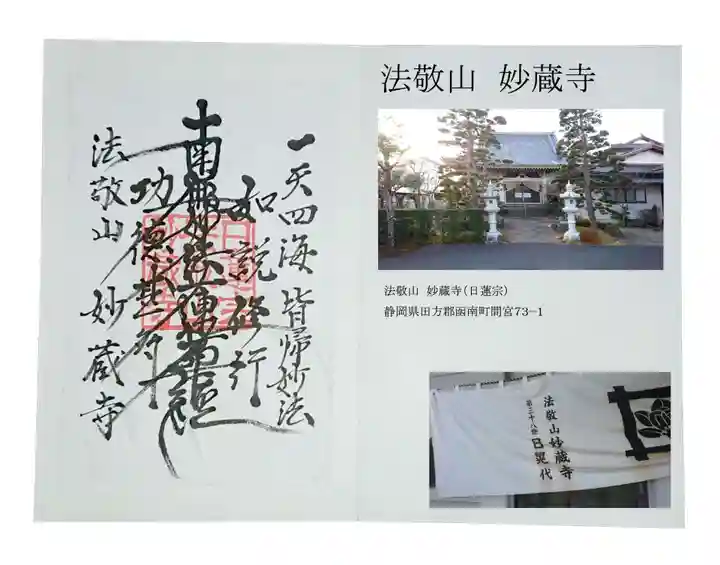 一天四海皆帰妙法
如説修行
南無妙法蓮華経
功徳
法敬山 妙蔵寺
法敬山 妙蔵寺
法敬山 妙蔵寺(日蓮宗)
静岡県田方郡函南町間宮73-1
法敬山妙蔵寺
第三十八世 日晃代